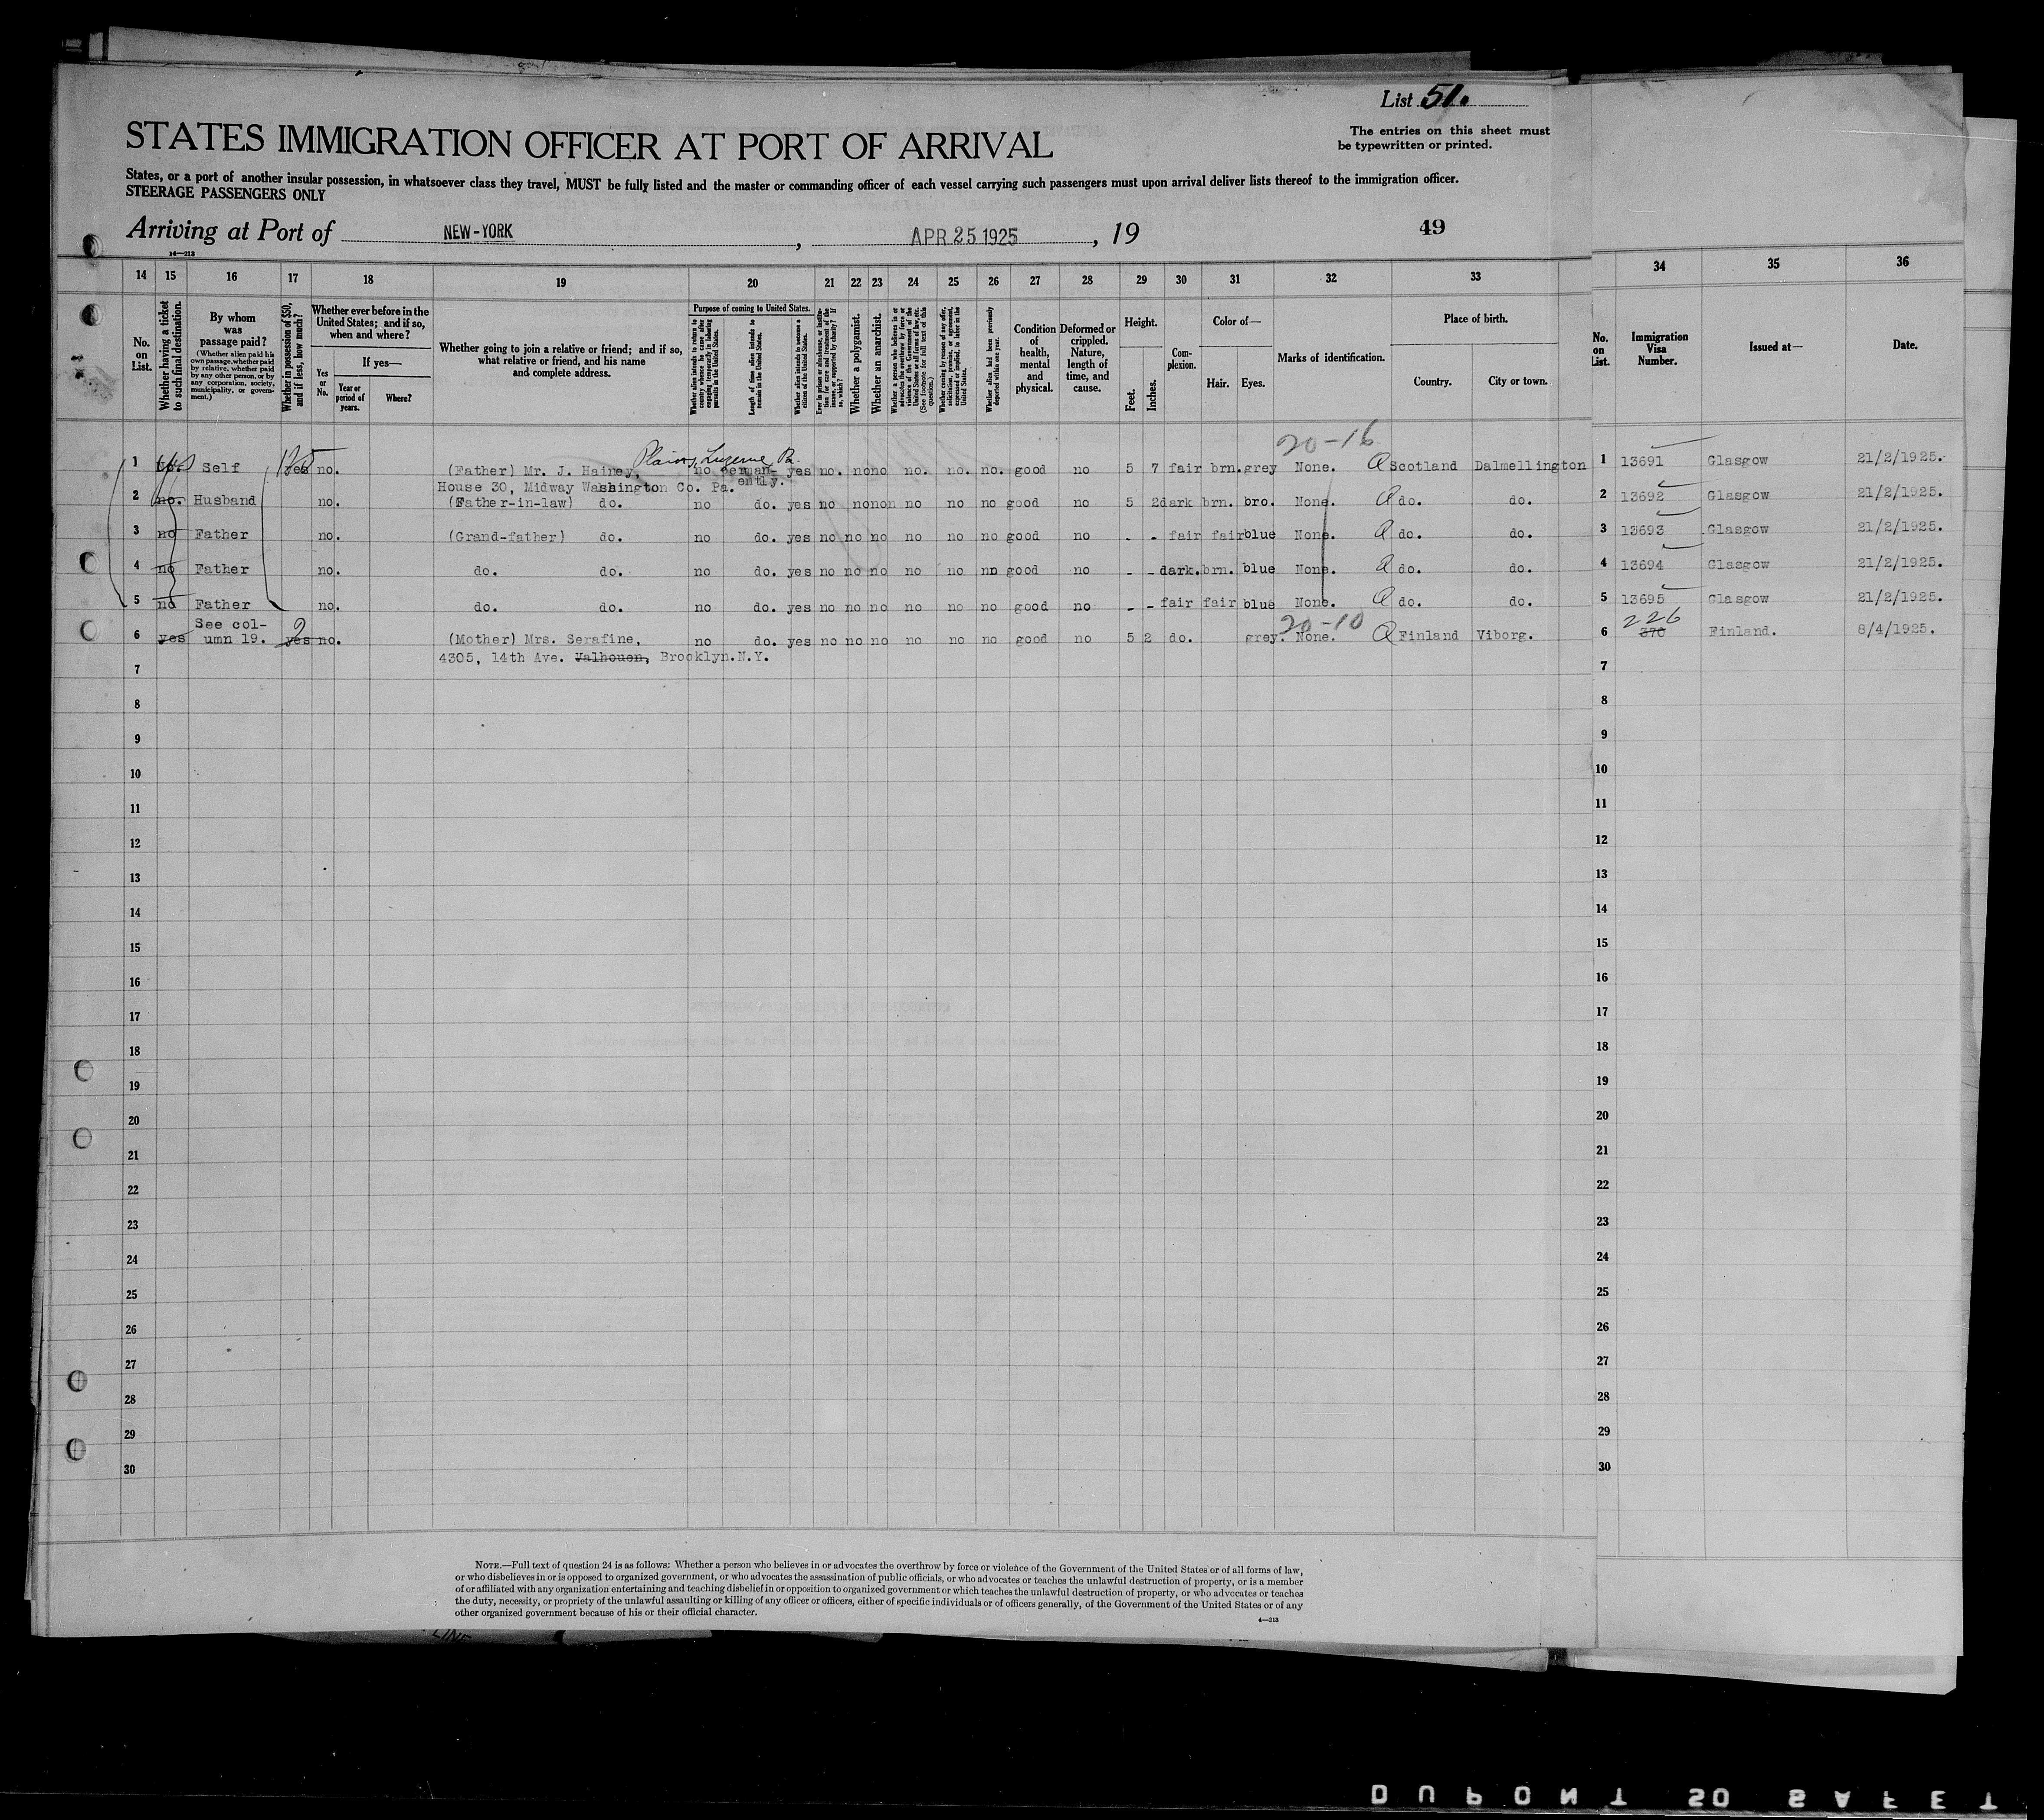 List 51.
The entries on this sheet must
be typewritten or printed.
STATES IMMIGRATION OFFICER AT PORT OF ARRIVAL
States, or a port of another insular possession, in whatsoever class they travel, MUST be fully listed and the master or commanding officer of each vessel carrying such passengers must upon arrival deliver lists thereof to the immigration officer.
STEERAGE PASSENGERS ONLY
Arriving at Port of NEW-YORK, APR 25 1925, 19
49
14—213
14 15 16 17 18 19 20 21 22 23 24 25 26 27 28 29 30 31 32 33 34 35 36
No. on List.
Whether having a ticket to such final destination.
By whom was passage paid?
(Whether alien paid his own passage, whether paid by relative, whether paid by any other person, or by any corporation, society, municipality, or government.)
Whether in possession of $50, and if less, how much?
Whether ever before in the United States; and if so, when and where?
Yes or No.
If yes—
Year or period of years.
Where?
Whether going to join a relative or friend; and if so, what relative or friend, and his name and complete address.
Purpose of coming to United States.
Whether alien intends to return to country whence he came after engaging temporarily in laboring pursuits in the United States.
Length of time alien intends to remain in the United States.
Whether alien intends to become a citizen of the United States.
Ever in prison or almshouse, or institution for care and treatment of the insane, or supported by charity? If so, which?
Whether a polygamist.
Whether an anarchist.
Whether a person who believes in or advocates the overthrow by force or violence of the Government of the United States or all forms of law, etc. (See footnote for full text of this question.)
Whether coming by reason of any offer, solicitation, promise, or agreement, expressed or implied, to labor in the United States.
Whether alien had been previously deported within one year.
Condition of health, mental and physical.
Deformed or crippled. Nature, length of time, and cause.
Height.
Feet. Inches.
Complexion.
Color of—
Hair. Eyes.
Marks of identification.
Place of birth.
Country. City or town.
No. on List.
Immigration Visa Number.
Issued at—
Date.
20-16
Plains, Luzerne Pa.
1 Self yes no. (Father) Mr. J. Hainey, no perman- yes no. no no no. no. no. good no 5 7 fair brn. grey None. Scotland Dalmellington 1 13691 Glasgow 21/2/1925.
House 30, Midway Washington Co. Pa. ently.
2 no. Husband no. (Father-in-law) do. no do. yes no no non no no no good no 5 2 dark brn. bro. None. do. do. 2 13692 Glasgow 21/2/1925.
3 no Father no. (Grand-father) do. no do. yes no no no no no no good no - - fair fair blue None. do. do. 3 13693 Glasgow 21/2/1925.
4 no Father no. do. do. no do. yes no no no no no no good no - - dark. brn. blue None. do. do. 4 13694 Glasgow 21/2/1925.
5 no Father no. do. do. no do. yes no no no no no no good no - - fair fair blue None. do. do. 5 13695 Glasgow 21/2/1925.
See col- 20-10 226
6 yes umn 19. yes no. (Mother) Mrs. Serafine, no do. yes no no no no no no good no 5 2 do. grey. None. Finland Viborg. 6 370 Finland. 8/4/1925.
4305, 14th Ave. Valhouen, Brooklyn.N.Y.
7 7
8 8
9 9
10 10
11 11
12 12
13 13
14 14
15 15
16 16
17 17
18 18
19 19
20 20
21 21
22 22
23 23
24 24
25 25
26 26
27 27
28 28
29 29
30 30
NOTE.—Full text of question 24 is as follows: Whether a person who believes in or advocates the overthrow by force or violence of the Government of the United States or of all forms of law,
or who disbelieves in or is opposed to organized government, or who advocates the assassination of public officials, or who advocates or teaches the unlawful destruction of property, or is a member
of or affiliated with any organization entertaining and teaching disbelief in or opposition to organized government or which teaches the unlawful destruction of property, or who advocates or teaches
the duty, necessity, or propriety of the unlawful assaulting or killing of any officer or officers, either of specific individuals or of officers generally, of the Government of the United States or of any
other organized government because of his or their official character.
4—213
LINE
DUPONT SO SAFET